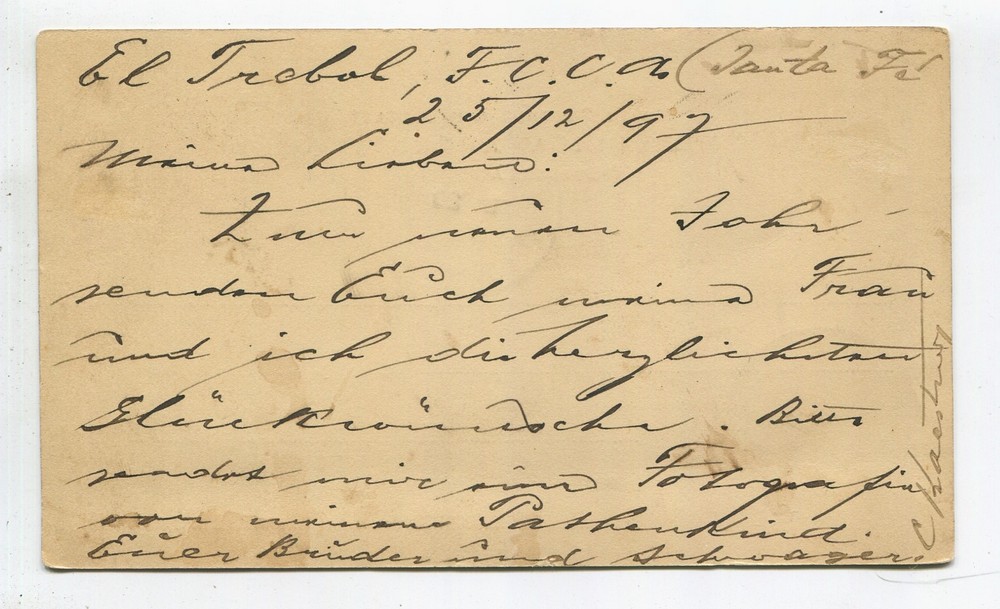 El Trebol, F.C.C.A. (Santa Fé
25/12/97
Meine Lieben:
Zum neuen Jahr
senden Euch meine Frau
und ich die herzlichsten
Glückwünsche. Bitte
sendet mir eine Fotografie
von meinem Pathenkind.
Euer Bruder und Schwager:
C Kaestner